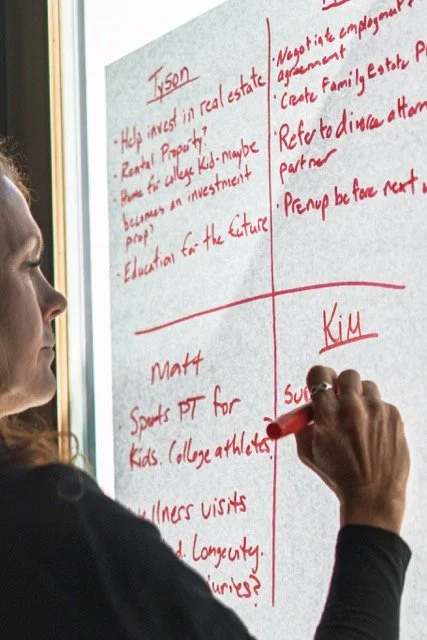 Tyson
· Help invest in real estate
· Rental Property?
· Home for college Kid-maybe
becomes an investment
prop?
· Education for the future
· Negotiate employment
agreement
· Create Family Estate
· Refer to divorce
partner
· Prenup before next
Matt
· Sports PT for
Kids. College athletes.
visits
Longevity.
Kim